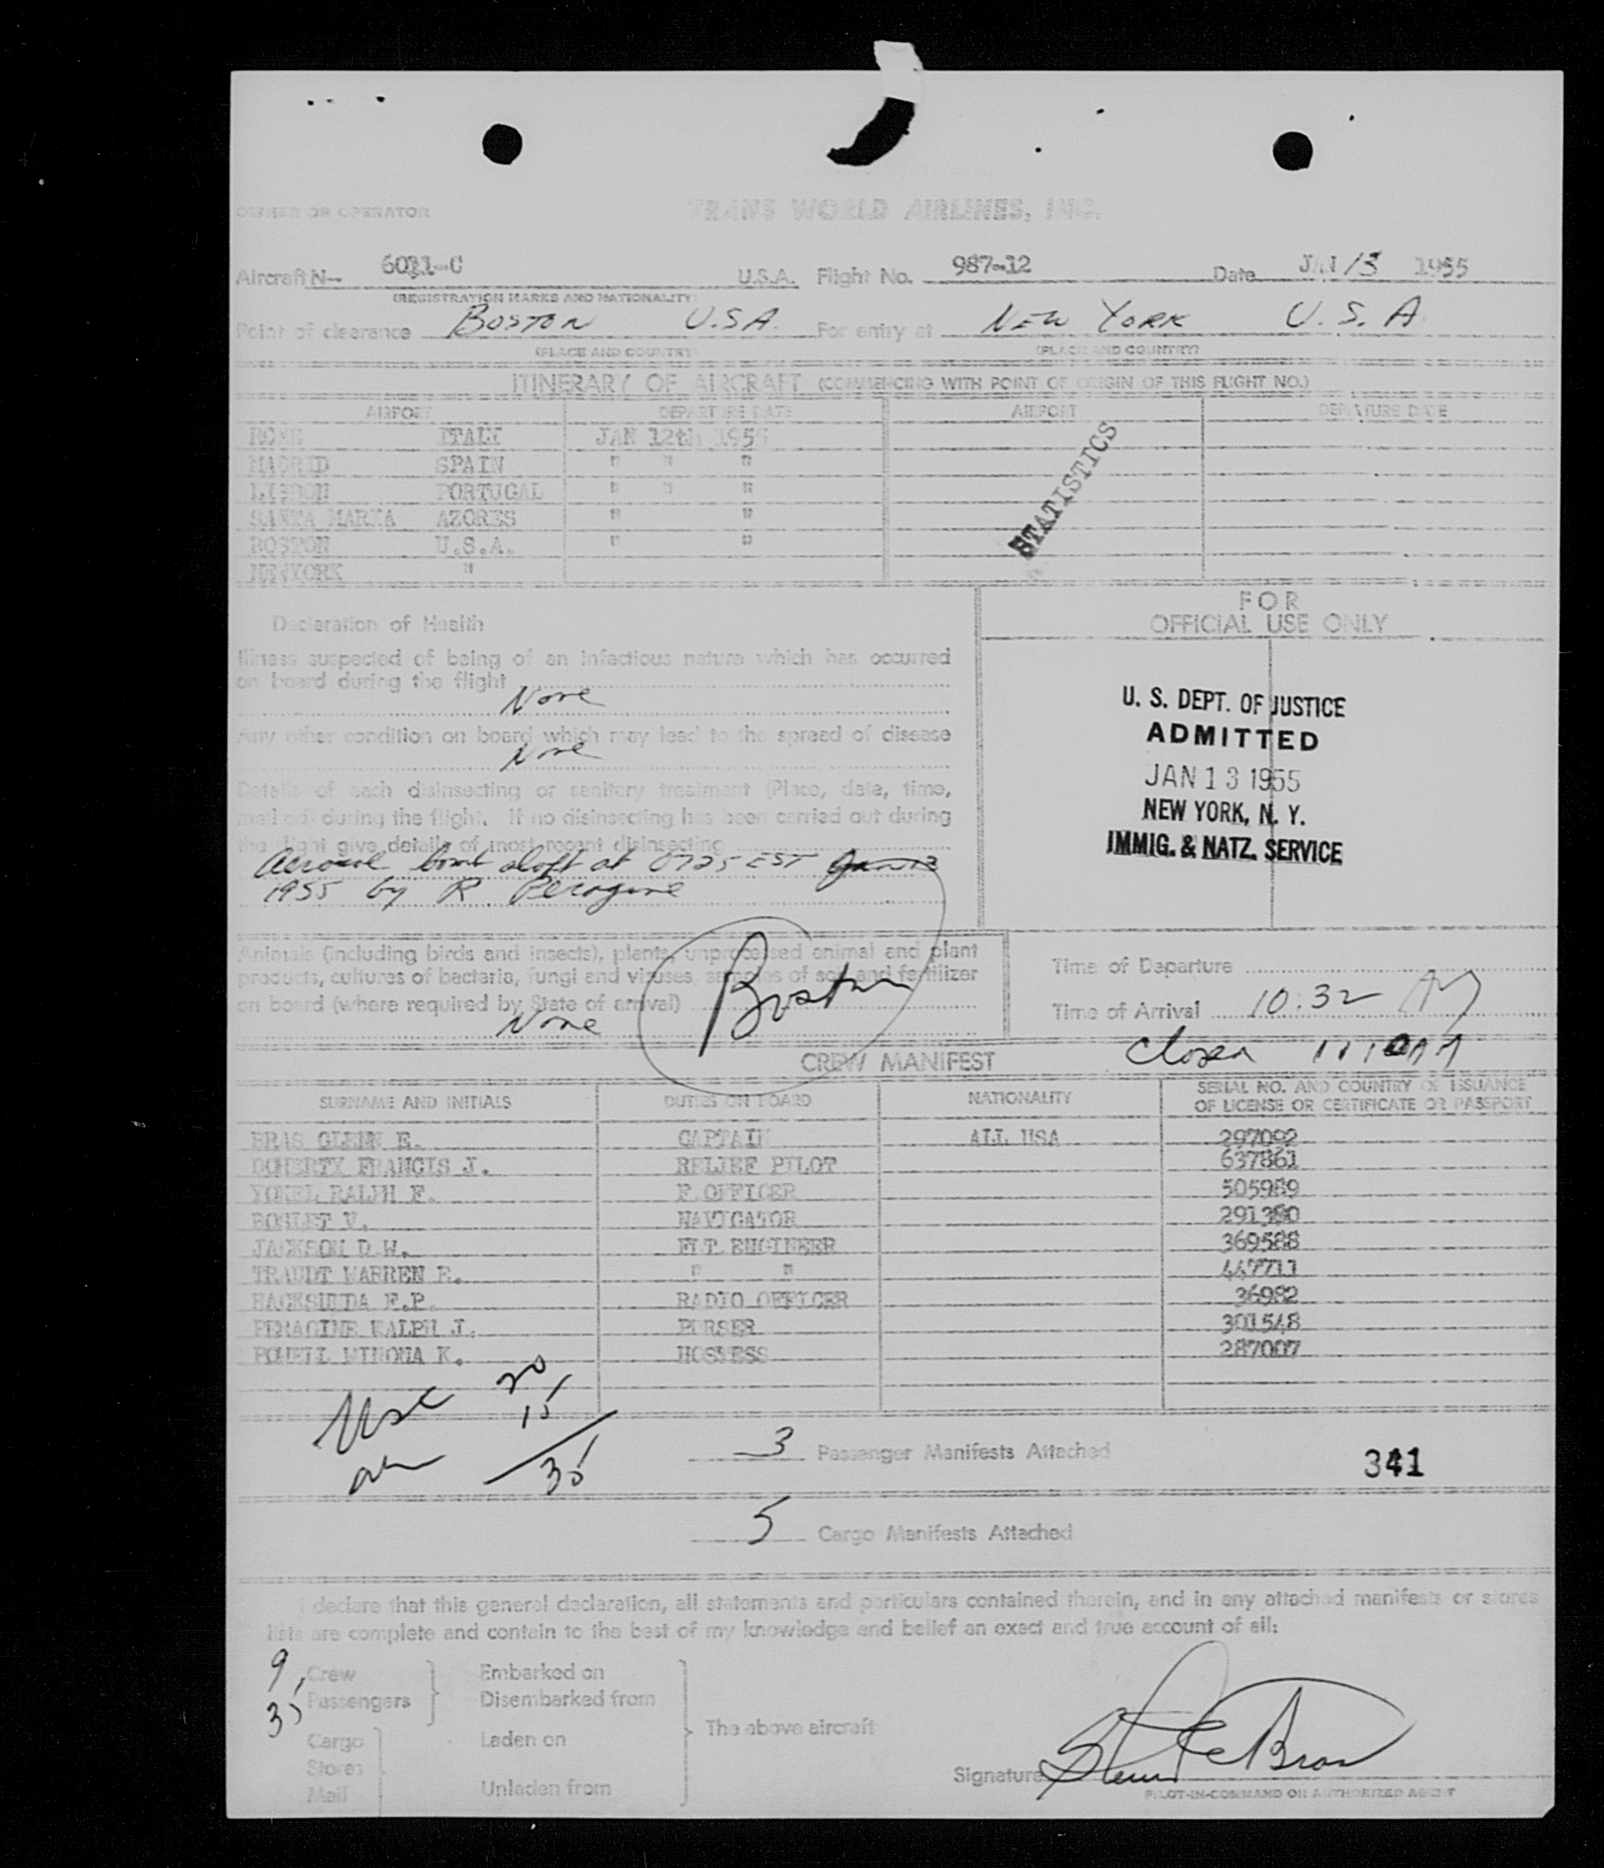 OWNER OR OPERATOR TRANS WORLD AIRLINES, INC.
Aircraft N-- 6011-C U.S.A. Flight No. 987-12 Date JAN 13 1955
(REGISTRATION MARKS AND NATIONALITY)
Point of clearance BOSTON U.S.A. For entry at NEW YORK U.S.A
(PLACE AND COUNTRY) (PLACE AND COUNTRY)
ITINERARY OF AIRCRAFT (COMMENCING WITH POINT OF ORIGIN OF THIS FLIGHT NO.)
AIRPORT DEPARTURE DATE AIRPORT DEPARTURE DATE
ROME ITALY JAN 12th 1955
MADRID SPAIN " " "
LISBON PORTUGAL " " "
SANTA MARIA AZORES " "
BOSTON U.S.A. " "
NEWYORK "
STATISTICS
FOR
OFFICIAL USE ONLY
Declaration of Health
Illness suspected of being of an infectious nature which has occurred
on board during the flight
None
Any other condition on board which may lead to the spread of disease
None
Details of each disinsecting or sanitary treatment (Place, date, time,
method) during the flight. If no disinsecting has been carried out during
the flight give details of most recent disinsecting
Aerosol bomb aloft at 0725 EST Jan 13
1955 by R Peragine
U. S. DEPT. OF JUSTICE
ADMITTED
JAN 13 1955
NEW YORK, N. Y.
IMMIG. & NATZ. SERVICE
Animals (including birds and insects), plants, unprocessed animal and plant
products, cultures of bacteria, fungi and viruses, samples of soil and fertilizer
on board (where required by State of arrival)
None
Boston
Time of Departure
Time of Arrival 10:32 AM
Closed 1110 AM
CREW MANIFEST
SURNAME AND INITIALS DUTIES ON BOARD NATIONALITY SERIAL NO. AND COUNTRY OF ISSUANCE
OF LICENSE OR CERTIFICATE OR PASSPORT
BRAS GLENN E. CAPTAIN ALL USA 297092
DOHERTY FRANCIS J. RELIEF PILOT 637861
RALPH F. F.OFFICER 505989
V. NAVIGATOR 291380
JACKSON D W. FLT ENGINEER 369588
TRAUDT WARREN E. " " 447711
F.P. RADIO OFFICER 36982
PERAGINE RALPH J. PURSER 301548
POWELL WINONA K. HOSTESS 287007
USC 20
15
35
3 Passenger Manifests Attached
341
5 Cargo Manifests Attached
I declare that this general declaration, all statements and particulars contained therein, and in any attached manifests or stores
lists are complete and contain to the best of my knowledge and belief an exact and true account of all:
9 Crew Embarked on
35 Passengers Disembarked from
The above aircraft
Cargo Laden on
Stores
Mail Unladen from
Signature Glenn E Bras
PILOT-IN-COMMAND OR AUTHORIZED AGENT